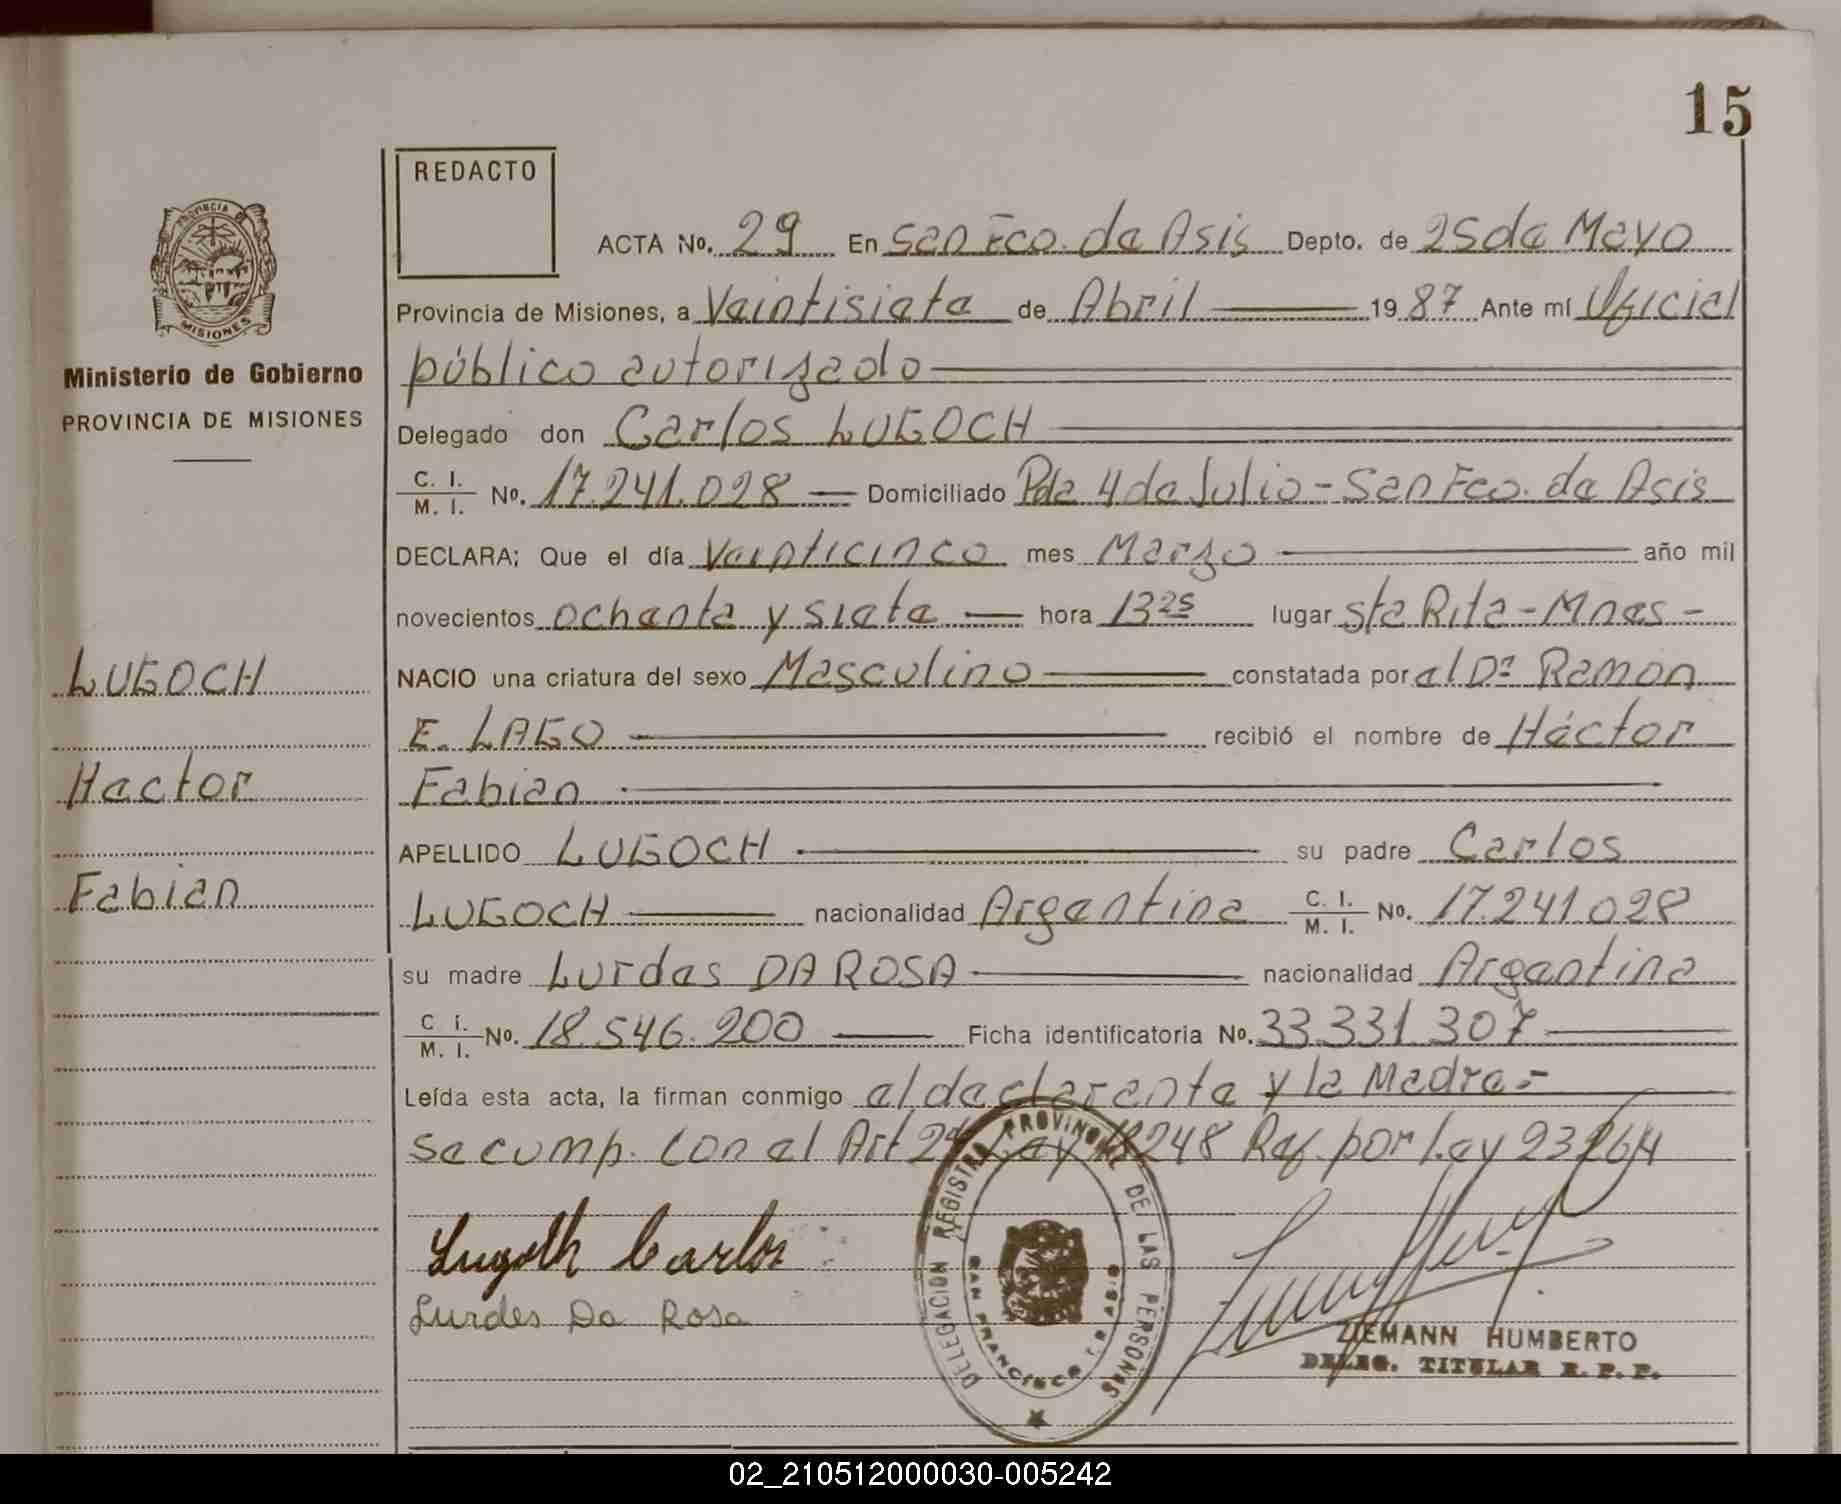 15
REDACTO
ACTA No. 29 En San Fco. de Asis Depto. de 25 de Mayo
Provincia de Misiones, a Veintisiete de Abril 1987 Ante mí Oficial
público autorizado
Ministerio de Gobierno
PROVINCIA DE MISIONES
PROVINCIA DE
MISIONES
Delegado don Carlos LUGOCH
C. I.
M. I. No. 17.241.028 Domiciliado Pda 4 de Julio - San Fco. de Asis
DECLARA; Que el día Veinticinco mes Marzo año mil
novecientos ochenta y siete hora 13 25 lugar Sta Rita - Mnes -
LUGOCH
NACIO una criatura del sexo Masculino constatada por el Dr Ramon
E. LAGO recibió el nombre de Héctor
Hector
Fabian
APELLIDO LUGOCH su padre Carlos
Fabian
LUGOCH nacionalidad Argentina C. I.
M. I. No. 17.241.028
su madre Lurdes DA ROSA nacionalidad Argentina
C. I.
M. I. No. 18.546.200 Ficha identificatoria No. 33.331.307
Leída esta acta, la firman conmigo el declarante y la Madre.-
Se cump. con el Art 2º Ley 18248 Ref. por Ley 23264
Lugoch Carlos
Lurdes Da Rosa
DELEGACION REGISTRO PROVINCIAL DE LAS PERSONAS
SAN FRANCISCO DE ASIS
ZIEMANN HUMBERTO
DELEG. TITULAR R. P. P.
02_210512000030-005242